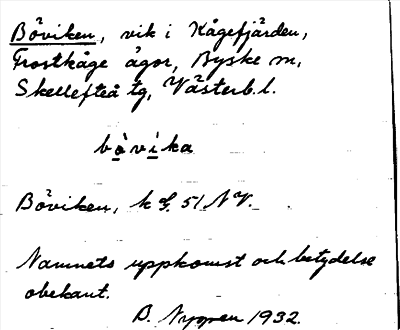 Böviken, vik i Kågefjärden,
Frostkåge ägor, Byske sn,
Skellefteå tg, Västerb. l.
bòvìka
Böviken, k 51 NV.
Namnets uppkomst och betydelse
obekant.
B. Nygren 1932.